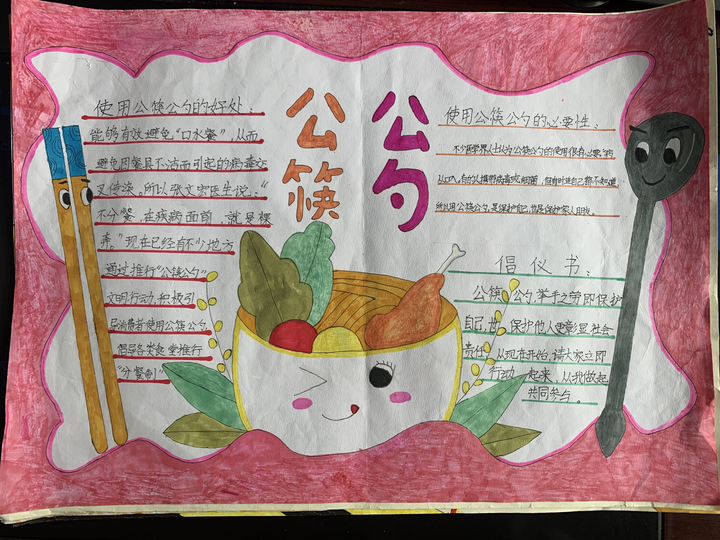 公筷
公勺
使用公筷公勺的好处：
能够有效避免“口水餐”，从而
避免因餐具不洁而引起的病毒交
叉传染。所以张文宏医生说：“
不分餐，在疾病面前，就是裸
奔。”现在已经有不少地方
通过推行“公筷公勺”
文明行动，积极引
导消费者使用公筷公勺，
倡导各类食堂推行
“分餐制”
使用公筷公勺的必要性：
不少医学界人士认为公筷公勺的使用很有必要“病
从口入，有的人携带病毒或细菌，但有时连自己都不知道
所以用公筷公勺，是保护自己，也是保护家人朋友。
倡仪书：
公筷公勺，举手之劳即保护
自己，也保护他人更彰显社会
责任，从现在开始，请大家立即
行动起来，从我做起
共同参与。